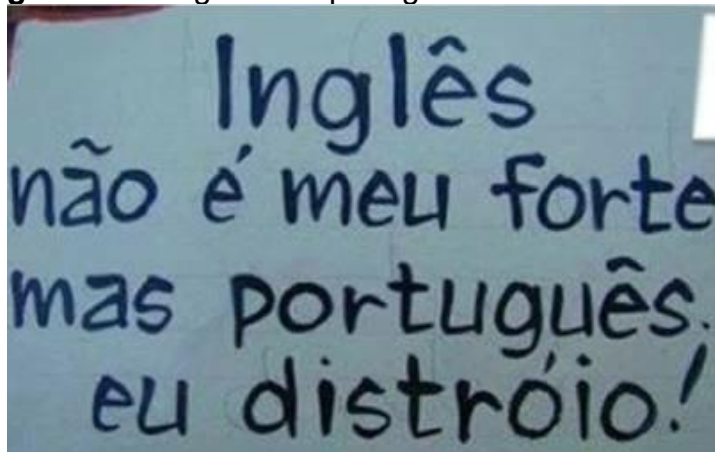 Inglês
não é meu forte
mas português.
eu distróio!